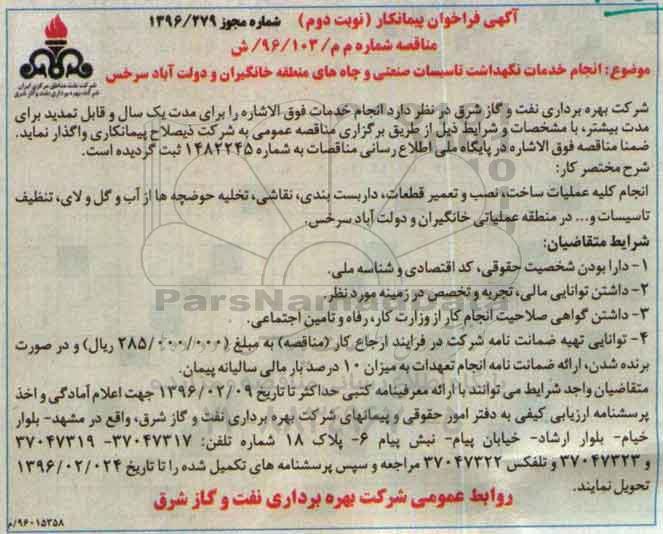 آگهی فراخوان پیمانکار (نوبت دوم) شماره مجوز ۱۳۹۶/۲۷۹
مناقصه شماره م م/۹۶/۱۰۳/ ش
شرکت نفت مناطق مرکزی ایران
شرکت بهره برداری نفت و گاز شرق
موضوع: انجام خدمات نگهداشت تاسیسات صنعتی و چاه های منطقه خانگیران و دولت آباد سرخس
شرکت بهره برداری نفت و گاز شرق در نظر دارد انجام خدمات فوق الاشاره را برای مدت یک سال و قابل تمدید برای
مدت بیشتر، با مشخصات و شرایط ذیل از طریق برگزاری مناقصه عمومی به شرکت ذیصلاح پیمانکاری واگذار نماید.
ضمنا مناقصه فوق الاشاره در پایگاه ملی اطلاع رسانی مناقصات به شماره ۱۴۸۲۲۴۵ ثبت گردیده است.
شرح مختصر کار:
انجام کلیه عملیات ساخت، نصب و تعمیر قطعات، داربست بندی، نقاشی، تخلیه حوضچه ها از آب و گل و لای، تنظیف
تاسیسات و... در منطقه عملیاتی خانگیران و دولت آباد سرخس.
شرایط متقاضیان:
۱- دارا بودن شخصیت حقوقی، کد اقتصادی و شناسه ملی.
۲- داشتن توانایی مالی، تجربه و تخصص در زمینه مورد نظر.
ParsNamadData
۳- داشتن گواهی صلاحیت انجام کار از وزارت کار، رفاه و تامین اجتماعی.
۴- توانایی تهیه ضمانت نامه شرکت در فرایند ارجاع کار (مناقصه) به مبلغ (۲۸۵/۰۰۰/۰۰۰ ریال) و در صورت
برنده شدن، ارائه ضمانت نامه انجام تعهدات به میزان ۱۰ درصد بار مالی سالیانه پیمان.
متقاضیان واجد شرایط می توانند با ارائه معرفینامه کتبی حداکثر تا تاریخ ۱۳۹۶/۰۲/۰۹ جهت اعلام آمادگی و اخذ
پرسشنامه ارزیابی کیفی به دفتر امور حقوقی و پیمانهای شرکت بهره برداری نفت و گاز شرق، واقع در مشهد- بلوار
خیام- بلوار ارشاد- خیابان پیام- نبش پیام ۶- پلاک ۱۸ شماره تلفن: ۳۷۰۴۷۳۱۷- ۳۷۰۴۷۳۱۹
و ۳۷۰۴۷۳۲۳ و تلفکس ۳۷۰۴۷۳۲۲ مراجعه و سپس پرسشنامه های تکمیل شده را تا تاریخ ۱۳۹۶/۰۲/۰۲۴
تحویل نمایند.
روابط عمومی شرکت بهره برداری نفت و گاز شرق
۹۶۰۱۵۳۵۸/م